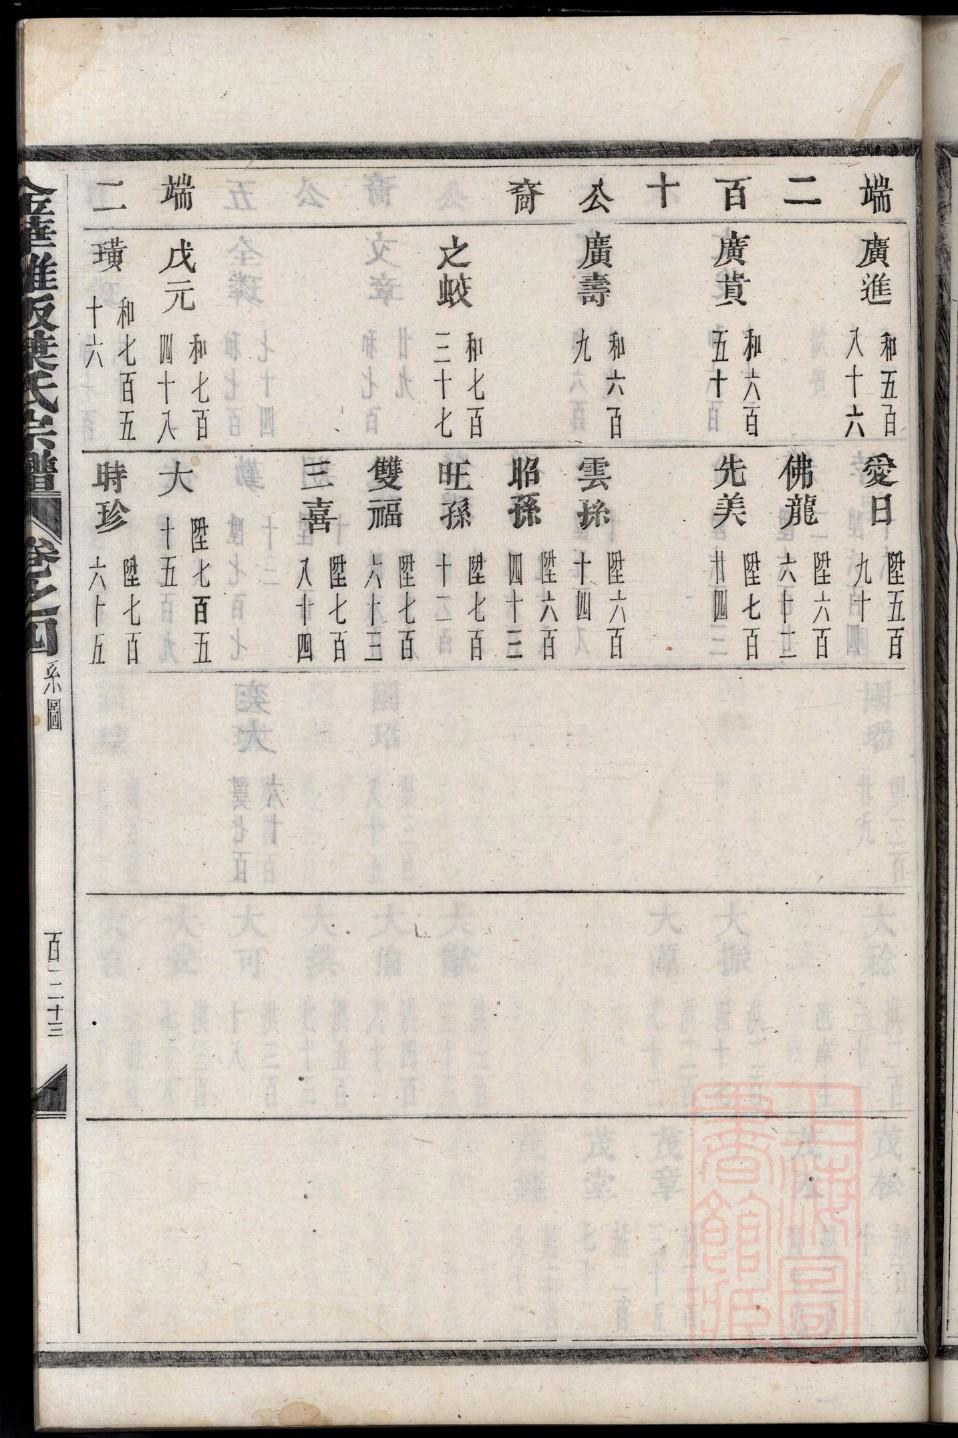 端二百十公裔
廣進 和五百八十六
廣蕡 和六百五十
廣壽 和六百九
之蛟 和七百三十七
愛日 陞五百九十
佛龍 陞六百六十二
先美 陞七百廿四
雲孫 陞六百十四
昭孫 陞六百四十三
旺孫 陞七百十二
雙福 陞七百六十三
三喜 陞七百八十四
端二
戊元 和七百四十八
璜 和七百五十六
大 陞七百五十五
時珍 陞七百六十五
金華雅畈葉氏宗譜 卷之四 系圖 百二十三
上海圖書館藏